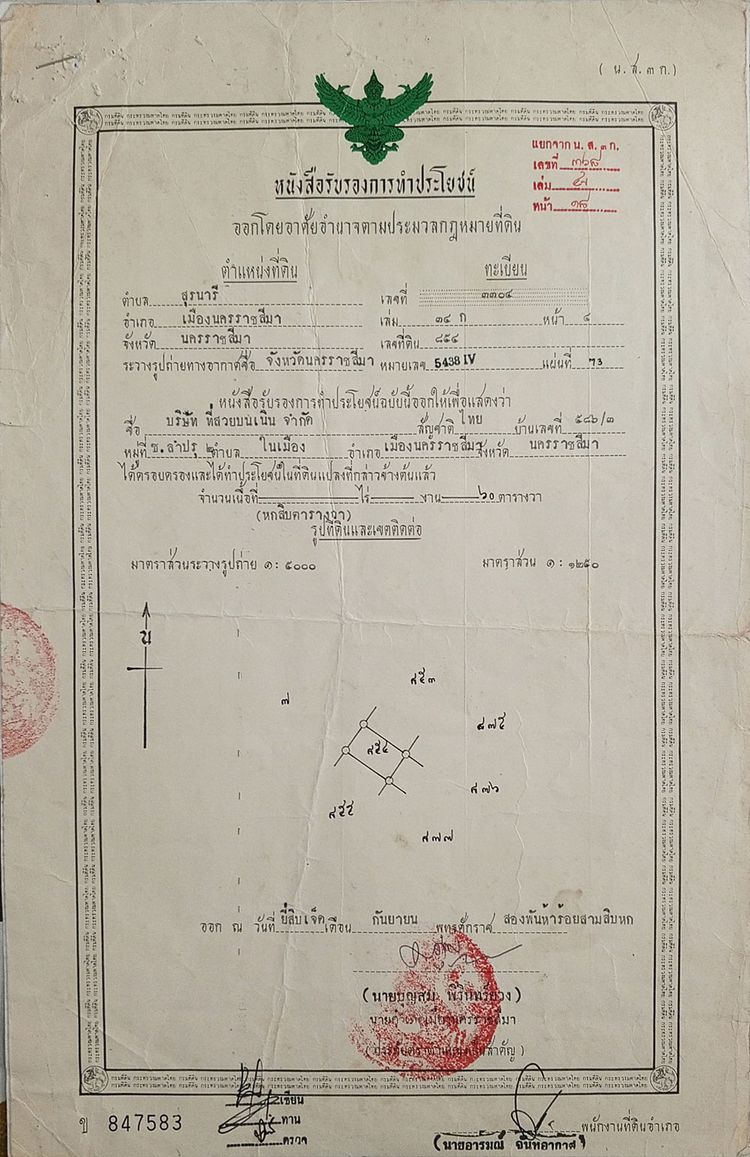 ( น. ส. ๓ ก.)
แยกจาก น. ส. ๓ ก.
เลขที่ ๓๖๘
เล่ม ๔
หน้า ๑๘
หนังสือรับรองการทำประโยชน์
ออกโดยอาศัยอำนาจตามประมวลกฎหมายที่ดิน
ตำแหน่งที่ดิน ทะเบียน
ตำบล สุรนารี เลขที่ ๓๓๐๔
อำเภอ เมืองนครราชสีมา เล่ม ๓๔ ก หน้า ๔
จังหวัด นครราชสีมา เลขที่ดิน ๘๕๔
ระวางรูปถ่ายทางอากาศชื่อ จังหวัดนครราชสีมา หมายเลข 5438 IV แผ่นที่ 73
หนังสือรับรองการทำประโยชน์ฉบับนี้ออกให้เพื่อแสดงว่า
ชื่อ บริษัท ที่สวยบนเนิน จำกัด สัญชาติ ไทย บ้านเลขที่ ๕๘๖/๓
หมู่ที่ ซ.ลำปรุ ๒ ตำบล ในเมือง อำเภอ เมืองนครราชสีมา จังหวัด นครราชสีมา
ได้ครอบครองและได้ทำประโยชน์ในที่ดินแปลงที่กล่าวข้างต้นแล้ว
จำนวนเนื้อที่ ไร่ งาน ๖๐ ตารางวา
(หกสิบตารางวา)
รูปที่ดินและเขตติดต่อ
มาตราส่วนระวางรูปถ่าย ๑ : ๕๐๐๐ มาตราส่วน ๑ : ๑๒๕๐
น
๘๕๓
๗
๘๗๕
๘๕๔
๘๗๖
๘๕๕
๘๗๗
ออก ณ วันที่ ยี่สิบเจ็ด เดือน กันยายน พุทธศักราช สองพันห้าร้อยสามสิบหก
(นายบุญสม พิรินทร์ยวง)
นายอำเภอเมืองนครราชสีมา
(ประทับตราประจำตำแหน่งเป็นสำคัญ)
เขียน
ทาน
ตรวจ
พนักงานที่ดินอำเภอ
ข 847583
(นายอารมณ์ จันทอากาศ)